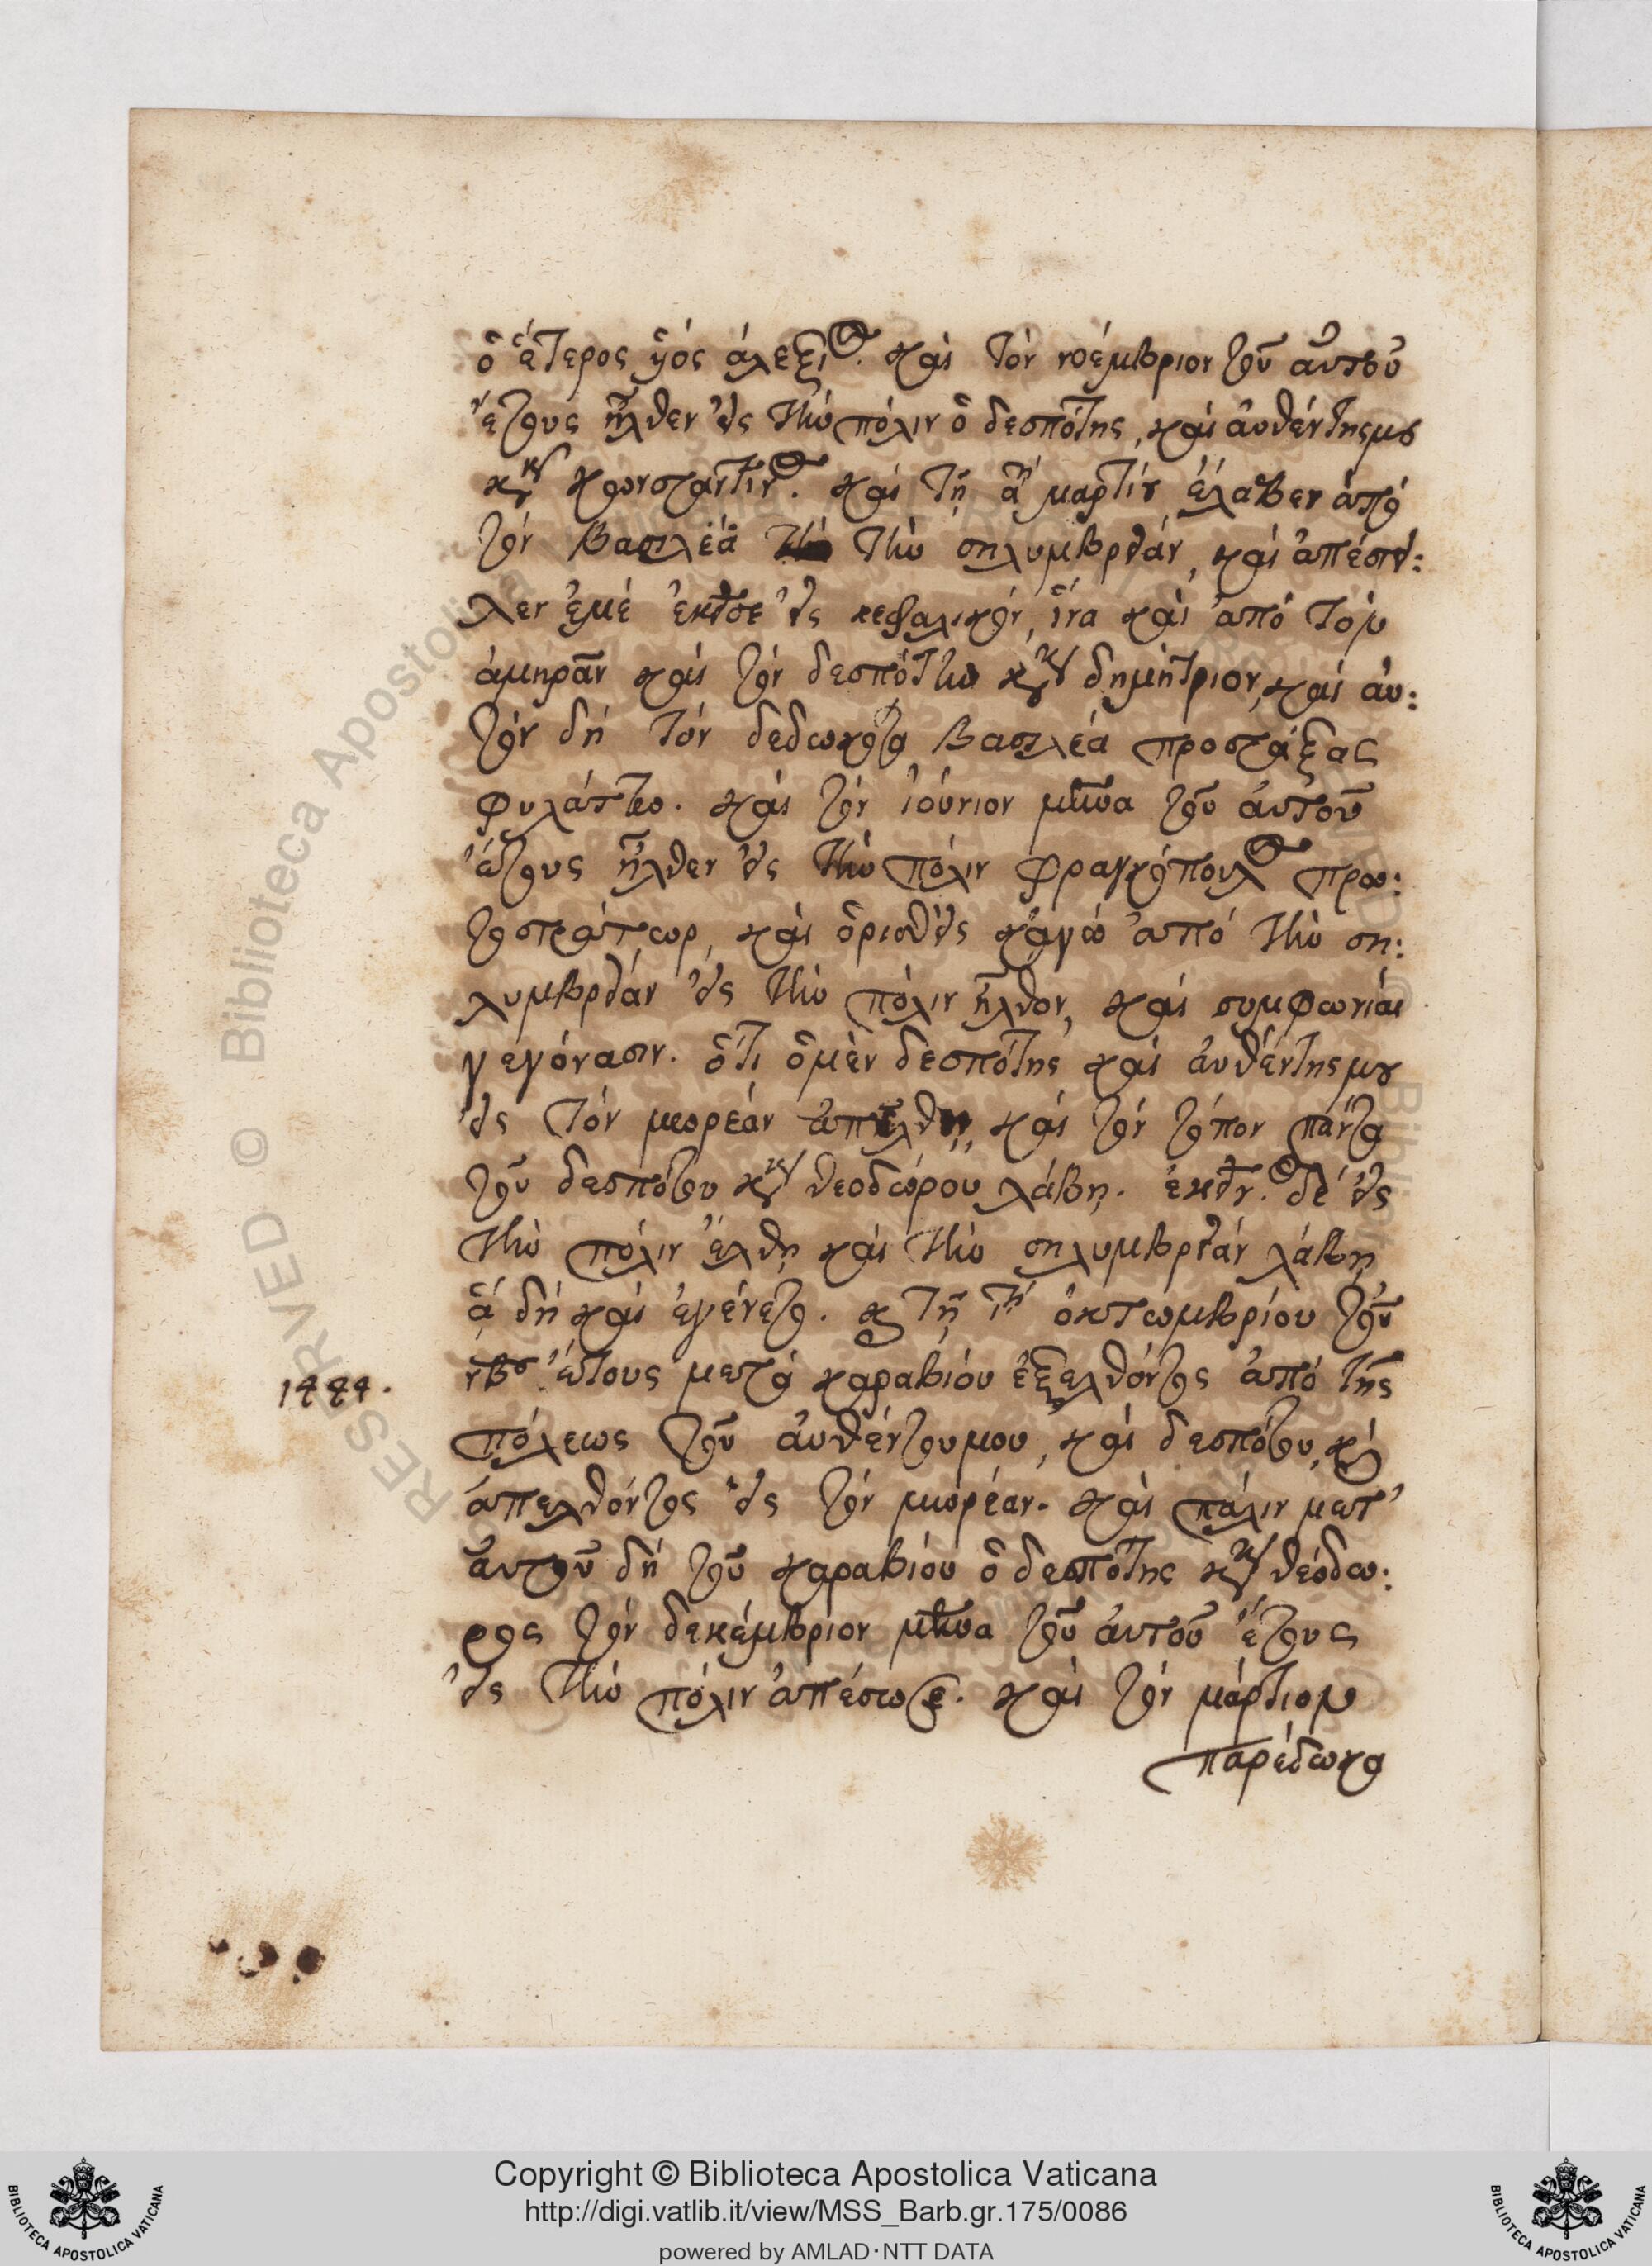 ὁ ἕτερος ὑιός ἀλέξιος. καὶ τὸν νοέμβριον τοῦ αὐτοῦ
ἔτους ἦλθεν εἰς τὴν πόλιν ὁ δεσπότης, καὶ αὐθέντης μου
κὺρ κωνσταντῖνος. καὶ τῇ αῃ μαρτίου ἔλαβεν ἀπό
τὸν βασιλέα τὴν σηλυμβρείαν, καὶ ἀπέστει:
λεν ἐμὲ ἐκεῖσε εἰς κεφαλικόν, ἵνα καὶ ἀπὸ τὸν
ἀμηρᾶν καὶ τὸν δεσπότην κὺρ δημήτριον, καὶ αὐ:
τὸν δὴ τὸν δεδωκότα βασιλέα προστάξας
φυλάττω. καὶ τὸν ἰούνιον μῆνα τοῦ αὐτοῦ
ἔτους ἦλθεν εἰς τὴν πόλιν φραγκόπουλος πρω:
τοστράτωρ, καὶ ὁρισθεὶς κἀγὼ ἀπὸ τὴν ση:
λυμβρείαν εἰς τὴν πόλιν ἦλθον, καὶ συμφωνίαι
γεγόνασιν. ὅτι ὁ μὲν δεσπότης καὶ αὐθέντης μου
εἰς τὸν μωρέαν ἀπέλθῃ, καὶ τὸν τόπον πάντα
τοῦ δεσπότου κὺρ θεοδώρου λάβῃ. ἐκεῖνος δὲ εἰς
τὴν πόλιν ἔλθῃ καὶ τὴν σηλυμβρείαν λάβῃ
ἃ δὴ καὶ ἐγένετο. καὶ τῇ ιῃ ὀκτωμβρίου τοῦ
νβου ἔτους μετὰ καραβίου ἐξελθόντος ἀπὸ τῆς
1444.
πόλεως τοῦ αὐθέντου μου, καὶ δεσπότου, καὶ
ἀπελθόντος εἰς τὸν μωρέαν. καὶ πάλιν μετ'
αὐτοῦ δὴ τοῦ καραβίου ὁ δεσπότης κὺρ θεόδω:
ρος τὸν δεκέμβριον μῆνα τοῦ αὐτοῦ ἔτους
εἰς τὴν πόλιν ἀπέσωσε. καὶ τὸν μάρτιον
παρέδωκα
Copyright © Biblioteca Apostolica Vaticana
http://digi.vatlib.it/view/MSS_Barb.gr.175/0086
powered by AMLAD·NTT DATA
BIBLIOTECA APOSTOLICA VATICANA
BIBLIOTECA APOSTOLICA VATICANA